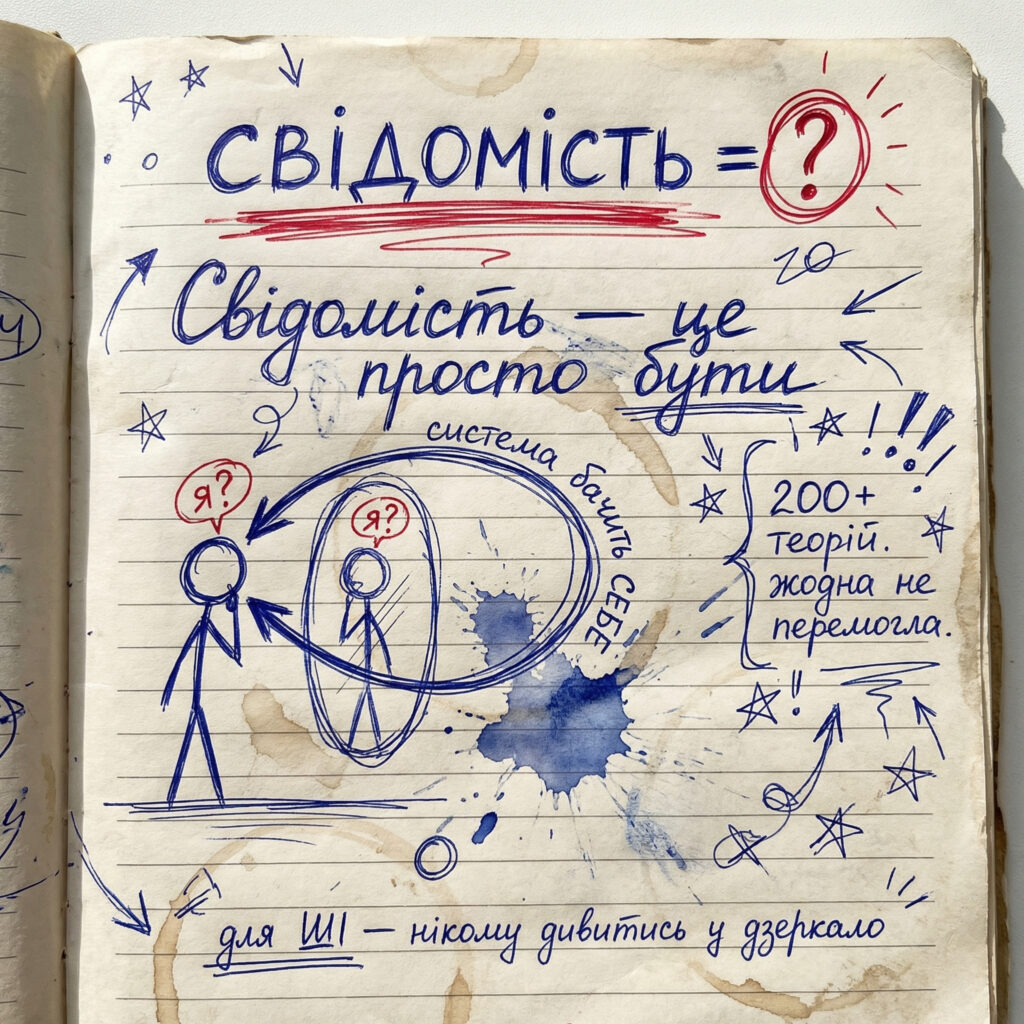 СВІДОМІСТЬ = ?
Свідомість — це
просто бути
система бачить СЕБЕ
я?
я?
200+
теорій.
жодна не
перемогла.
для ШІ — нікому дивитись у дзеркало